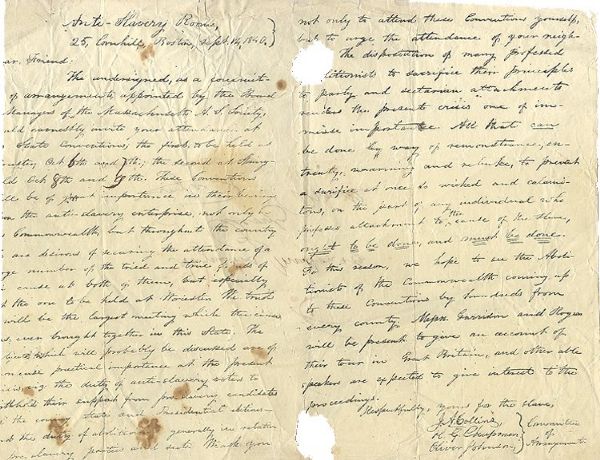 Anti-Slavery Rooms,
25, Cornhill, Boston, Sept. 14, 1840.
ar Friend:
The undersigned, as a commit-
of arrangements appointed by the Board
Managers of the Massachusetts A. S. Society,
uld earnestly invite your attendance at
State Conventions, the first to be held at
Oct 6th and 7th; the second at Spring-
ld Oct 8th and 9th. These Conventions
ill be of importance in their bearing
on the anti-slavery enterprise, not only in
Commonwealth but throughout the country
are desirous of securing the attendance of a
ge number of the tried and true friends of
cause at both of them, but especially
t the one to be held at Worcester. We trust
will be the largest meeting which the cause
s, ever brought together in this State. The
which will probably be discussed are of
practical importance at the present
the duty of anti-slavery voters to
thhold their support from pro-slavery candidates
the County, State and Presidential elections
the duty of abolitionists generally in relation
pro slavery parties and sects. We ask you
not only to attend these Conventions yourself,
but to urge the attendance of your neigh-
The disposition of many professed
litionists to sacrifice their principles
to party and sectarian attachments
renders the present crisis one of im-
mense importance. All that can
be done by way of remonstrance, en-
treaty, warning and rebuke, to prevent
a sacrifice at once so wicked and calami-
tous, on the part of any individual who
professes attachment to the cause of the slave,
ought to be done, and must be done.
For this reason, we hope to see the Abol-
itionists of the Commonwealth coming up
to these Conventions by hundreds from
every county. Messrs. Garrison and Rogers
will be present to give an account of
their tour in Great Britain, and other able
speakers are expected to give interest to the
proceedings.
Respectfully, yours for the slave,
J. A. Collins,
H. G. Chapman,
Oliver Johnson,
Committee
of
Arrangements